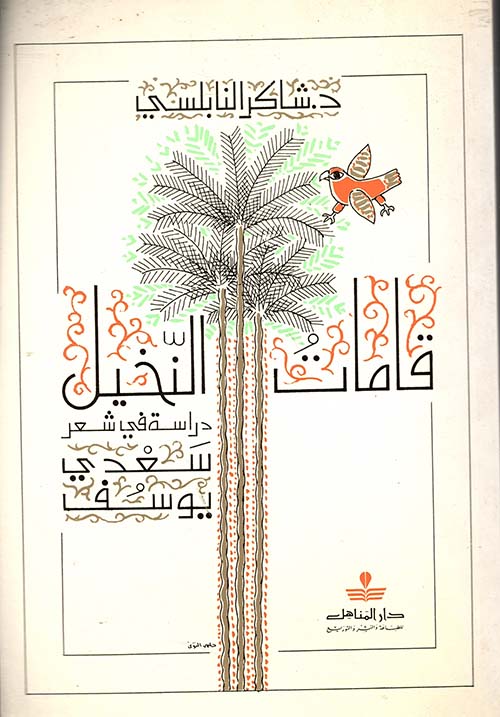 د. شاكر النابلسي
قاماتُ النّخيل
دراسة في شعر
سَعْدي
يوسُف
دار المناهل
للطباعة والنشر والتوزيع